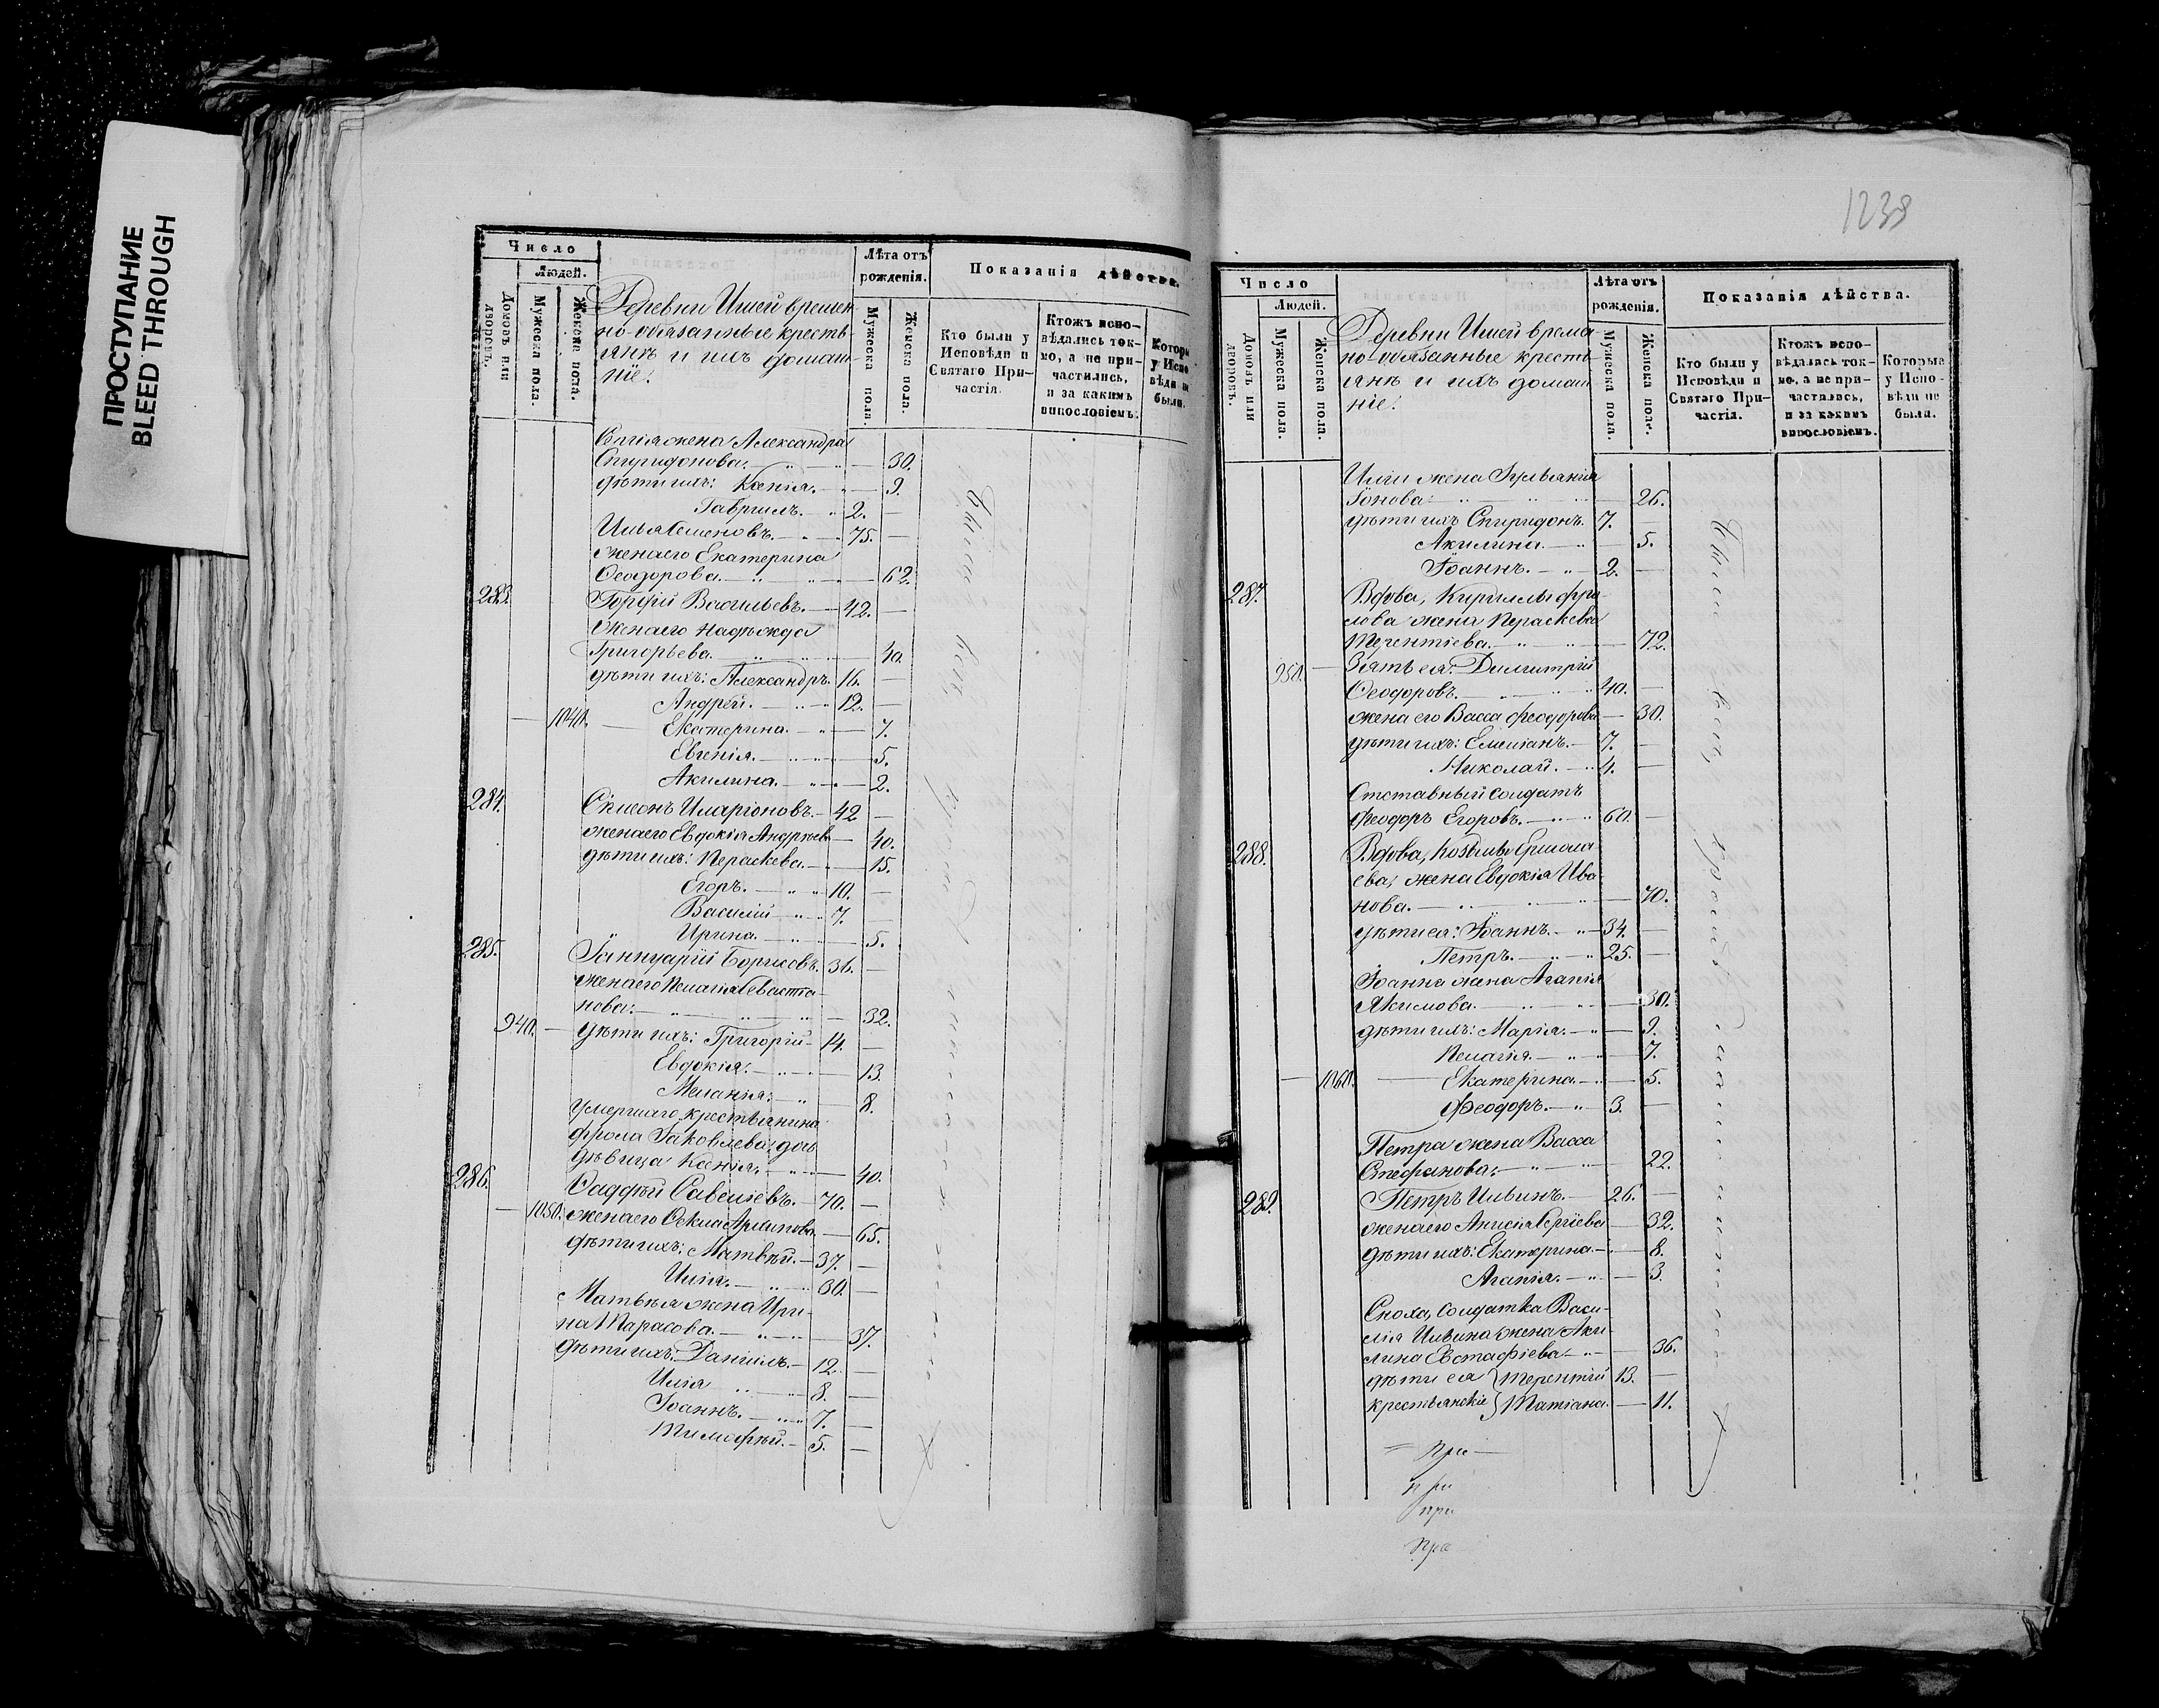 ПРОСТУПАНИЕ
BLEED THROUGH
Число
Людей.
Домовъ или дворовъ.
Мужеска пола.
Женска пола.
Деревни Ишей времен-
но-обязанные кресть-
янѣ и ихъ домаш-
ніе:
Лѣта отъ
рожденія.
Мужеска пола.
Женска пола.
Показанія дѣйства.
Кто были у
Исповѣди и
Святаго При-
частія.
Ктожъ испо-
вѣдались ток-
мо, а не при-
частились,
и за какимъ
винословіемъ.
Которы
у Испо
вѣди не
были.
жена Александра
Спиридонова. 30.
дѣти ихъ: Ксенія. 9.
Гавріилъ. 2.
Илья Семеновъ. 75.
жена его Екатерина
Ѳеодорова. 62.
283. Гордій Васильевъ. 42.
жена его Надежда
Григорьева. 40.
дѣти ихъ: Александръ. 16.
Андрей. 12.
1040. Екатерина. 7.
Евгенія. 5.
Акилина. 2.
284. Симеонъ Иларіоновъ. 42
жена его Евдокія Андреева 40.
дѣти ихъ: Пераскева. 15.
Егоръ. 10.
Василій 7.
Ирина. 5.
285. Іаннуарій Борисовъ. 36.
жена его Пелагія Севастіа-
нова: 32.
940. дѣти ихъ: Григорій 14.
Евдокія: 13.
Меланія: 8.
умершаго крестьянина
Фрола Іаковлева дочь
дѣвица Ксенія. 40.
286. Ѳаддѣй Савельевъ. 70.
1050. жена его Ѳекла Архипова 65.
дѣти ихъ: Матвѣй. 37.
Илія. 30.
Матвѣя жена Ири-
на Тарасова. 37.
дѣти ихъ: Даніилъ. 12.
Илія 8.
Іоаннъ. 7.
Тимофѣй. 5.
1239
Число
Людей.
Домовъ или дворовъ.
Мужеска пола.
Женска пола.
Деревни Ишей времен-
но-обязанные кресть-
янѣ и ихъ домаш-
ніе:
Лѣта отъ
рожденія.
Мужеска пола.
Женска пола.
Показанія дѣйства.
Кто были у
Исповѣди и
Святаго При-
частія.
Ктожъ испо-
вѣдались ток-
мо, а не при-
частились,
и за какимъ
винословіемъ.
Которые
у Испо-
вѣди не
были.
Иліи жена Іуліанія
Іонова: 26.
дѣти ихъ Спиридонъ. 7.
Акилина. 5.
Іоаннъ. 2.
287. Вдова, Кириллы Фро
лова жена Пераскева
Терентіева. 72.
950. Зять ея: Димитрій
Ѳеодоровъ. 40.
жена его Васса Феодорова 30.
дѣти ихъ: Емиліанъ. 7.
Николай. 4.
Отставный солдатъ
Феодоръ Егоровъ. 60.
288. Вдова, Козьмы Ермола
ева, жена Евдокія Ива
нова. 70.
дѣти ея: Іоаннъ. 34.
Петръ. 25.
Іоанна жена Агапія
Якимова. 30.
дѣти ихъ: Марія. 9.
Пелагія. 7.
1060. Екатерина. 5.
Феодоръ. 3.
Петра жена Васса
Стефанова: 22.
289. Петръ Ильинъ. 26.
жена его Анисія Сергіева 32.
дѣти ихъ: Екатерина. 8.
Агапія. 3.
Сноха, солдатка Васи-
лія Ильина жена Аки-
лина Евстафіева: 36.
дѣти ея Терентій 13.
крестьянскіе Татіана. 11.
При
при
при
при